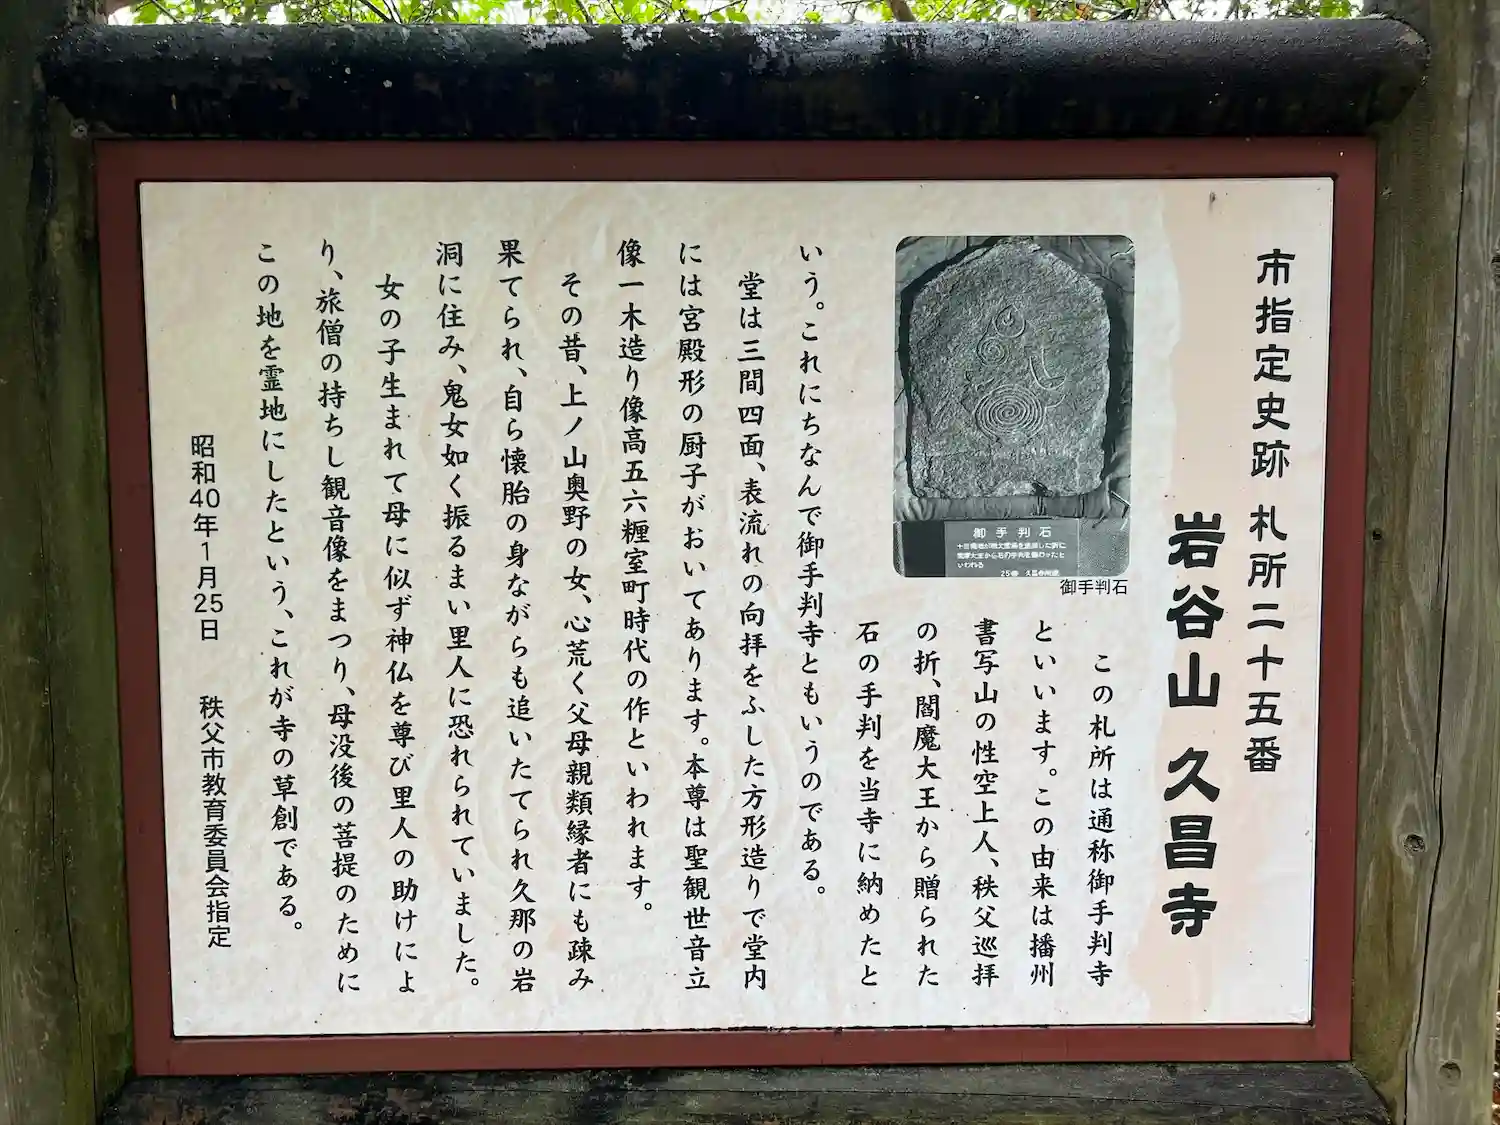 市指定史跡 札所二十五番
岩谷山 久昌寺
この札所は通称御手判寺
といいます。この由来は播州
書写山の性空上人、秩父巡拝
の折、閻魔大王から贈られた
石の手判を当寺に納めたと
いう。これにちなんで御手判寺ともいうのである。
堂は三間四面、表流れの向拝をふした方形造りで堂内
には宮殿形の厨子がおいてあります。本尊は聖観世音立
像一木造り像高五六糎室町時代の作といわれます。
その昔、上ノ山奥野の女、心荒く父母親類縁者にも疎み
果てられ、自ら懐胎の身ながらも追いたてられ久那の岩
洞に住み、鬼女如く振るまい里人に恐れられていました。
女の子生まれて母に似ず神仏を尊び里人の助けによ
り、旅僧の持ちし観音像をまつり、母没後の菩提のために
この地を霊地にしたという、これが寺の草創である。
昭和40年1月25日 秩父市教育委員会指定
御手判石
いわれる
25番 久昌寺
御手判石